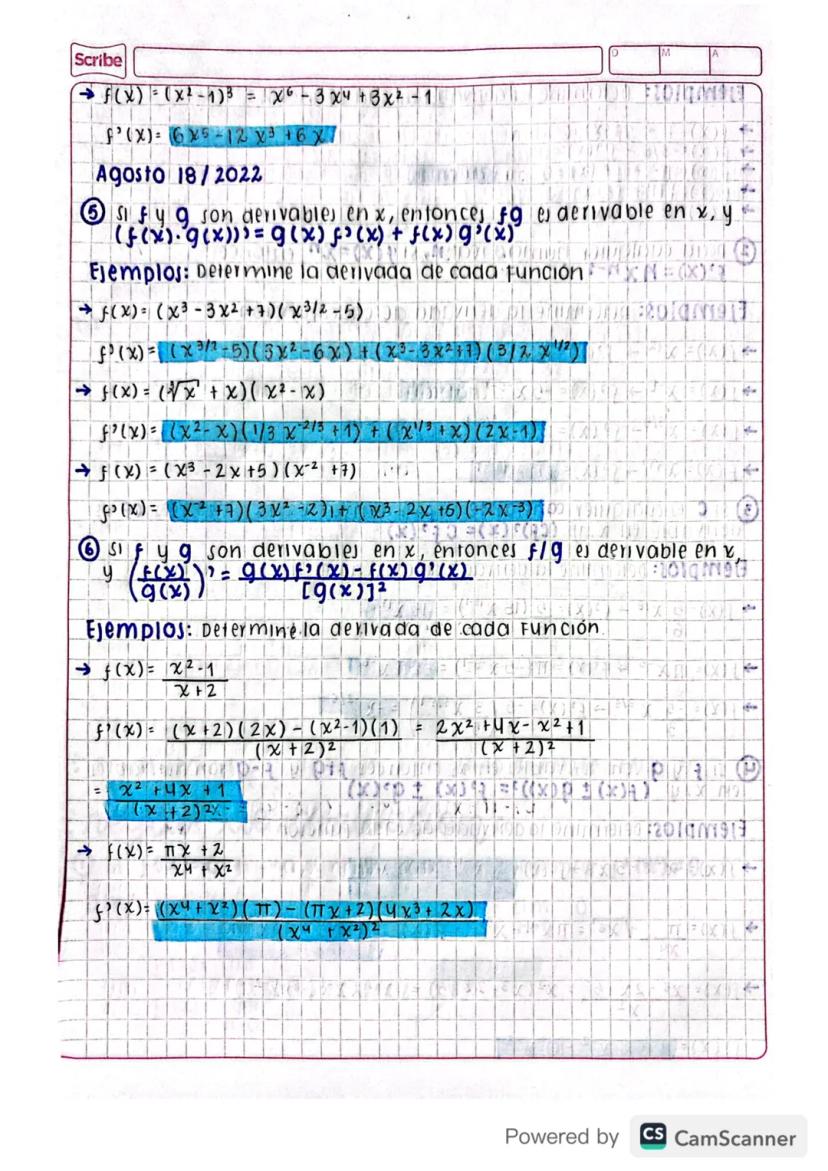 Scribe
D M A
→ f(x) = (x² - 1)³ = x⁶ - 3x⁴ + 3x² - 1
f'(x) = 6x⁵ - 12x³ + 6x
Agosto 18/2022
⑤ Si f y g son derivables en x, entonces fg es derivable en x, y
(f(x)·g(x))' = g(x) f'(x) + f(x) g'(x)
Ejemplos: Determine la derivada de cada función
→ f(x) = (x³ - 3x² + 7)(x^{3/2} - 5)
f'(x) = (x^{3/2} - 5)(3x² - 6x) + (x³ - 3x² + 7)(3/2 x^{1/2})
→ f(x) = (∛x + x)(x² - x)
f'(x) = (x² - x)(1/3 x^{-2/3} + 1) + (x^{1/3} + x)(2x - 1)
→ f(x) = (x³ - 2x + 5)(x⁻² + 7)
f'(x) = (x⁻² + 7)(3x² - 2) + (x³ - 2x + 5)(-2x⁻³)
⑥ Si f y g son derivables en x, entonces f/g es derivable en x,
y (f(x)/g(x))' = g(x) f'(x) - f(x) g'(x) / [g(x)]²
Ejemplos: Determine la derivada de cada función.
→ f(x) = x² - 1 / x + 2
f'(x) = (x+2)(2x) - (x²-1)(1) / (x+2)² = 2x² + 4x - x² + 1 / (x+2)²
= x² + 4x + 1 / (x+2)²
→ f(x) = πx + 2 / x⁴ + x²
f'(x) = (x⁴ + x²)(π) - (πx + 2)(4x³ + 2x) / (x⁴ + x²)²
Powered by CS CamScanner